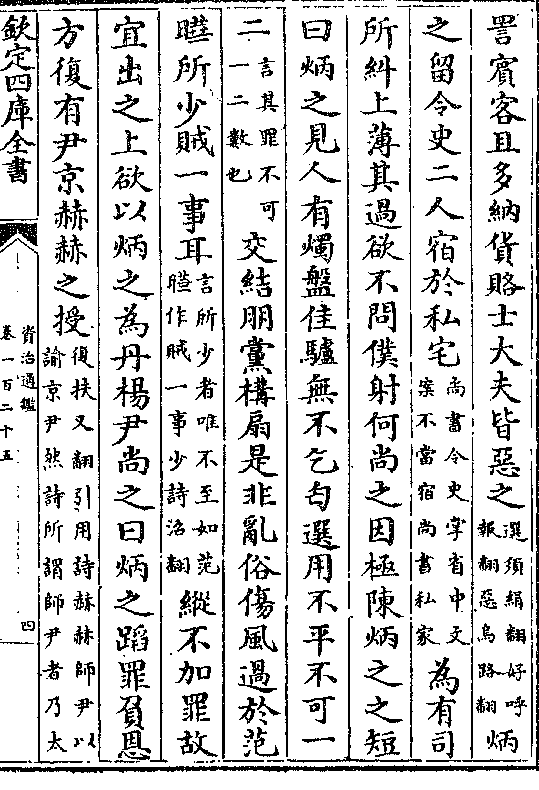 詈賓客且多納貨賂士大夫皆惡之選須絹翻好呼報翻惡烏路翻炳
之留令史二人宿於私宅尚書令史掌省中文案不當宿尚書私家為有司
所糾上薄其過欲不問僕射何尚之因極陳炳之之短
曰炳之見人有燭盤佳驢無不乞匄選用不平不可一
二言其罪不可一二數也交結朋黨構扇是非亂俗傷風過於范
瞱所少賊一事耳言所少者唯不至如范瞱作賊一事少詩沼翻縱不加罪故
宜出之上欲以炳之為丹楊尹尚之曰炳之蹈罪負恩
方復有尹京赫赫之授復扶又翻引用詩赫赫師尹以諭京尹然詩所謂師尹者乃太
欽定四庫全書
資治通鑑
卷一百二十五
四